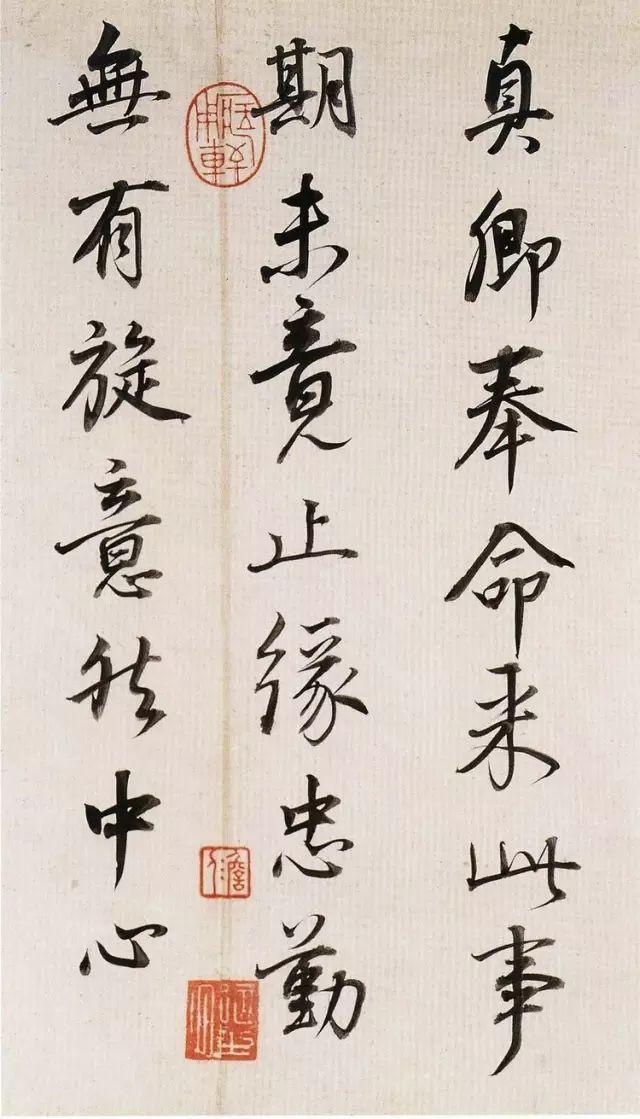 真卿奉命来此事
期未竟止緣忠勤
無有旋意然中心